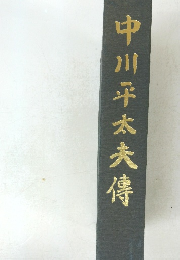 中川平太夫傳